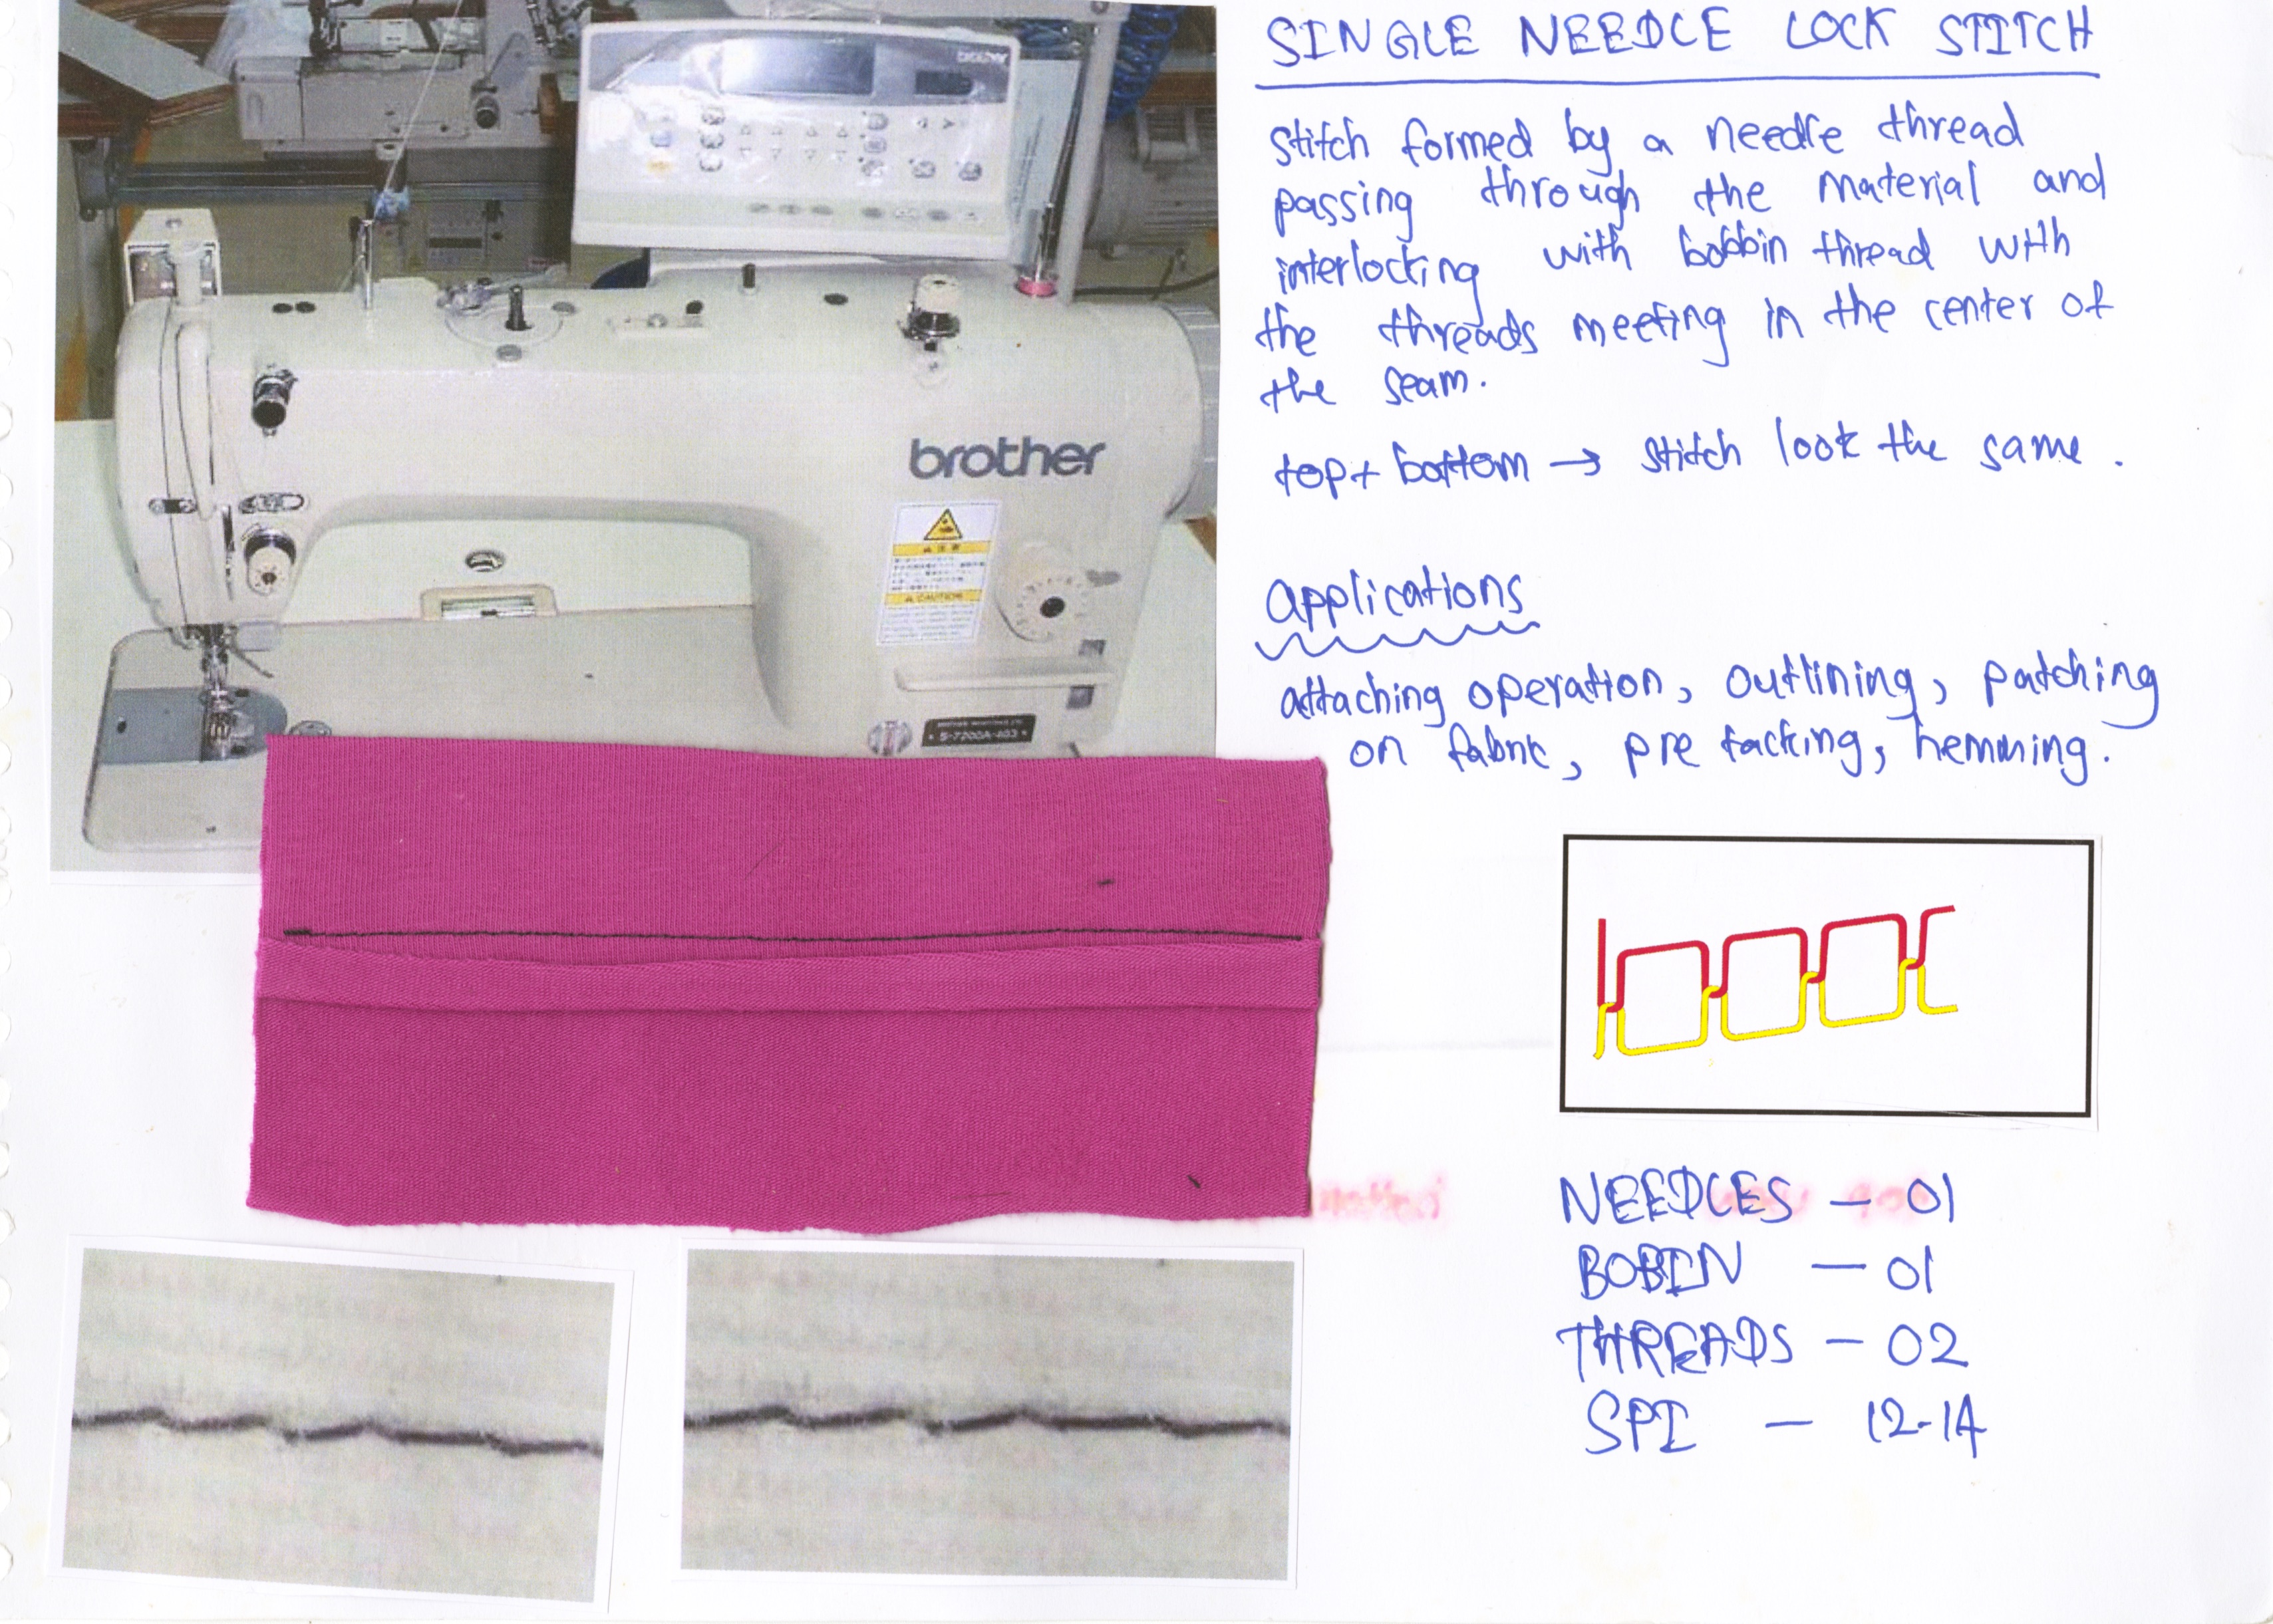 SINGLE NEEDLE LOCK STITCH
stitch formed by a needle thread
passing through the material and
interlocking with bobbin thread with
the threads meeting in the center of
the seam.
top+ bottom → stitch look the same.
applications
attaching operation, outlining, patching
on fabric, pre tacking, hemming.
NEEDLES — 01
BOBIN — 01
THREADS — 02
SPI — 12-14
brother
brother
CAUTION
S-7200A-403